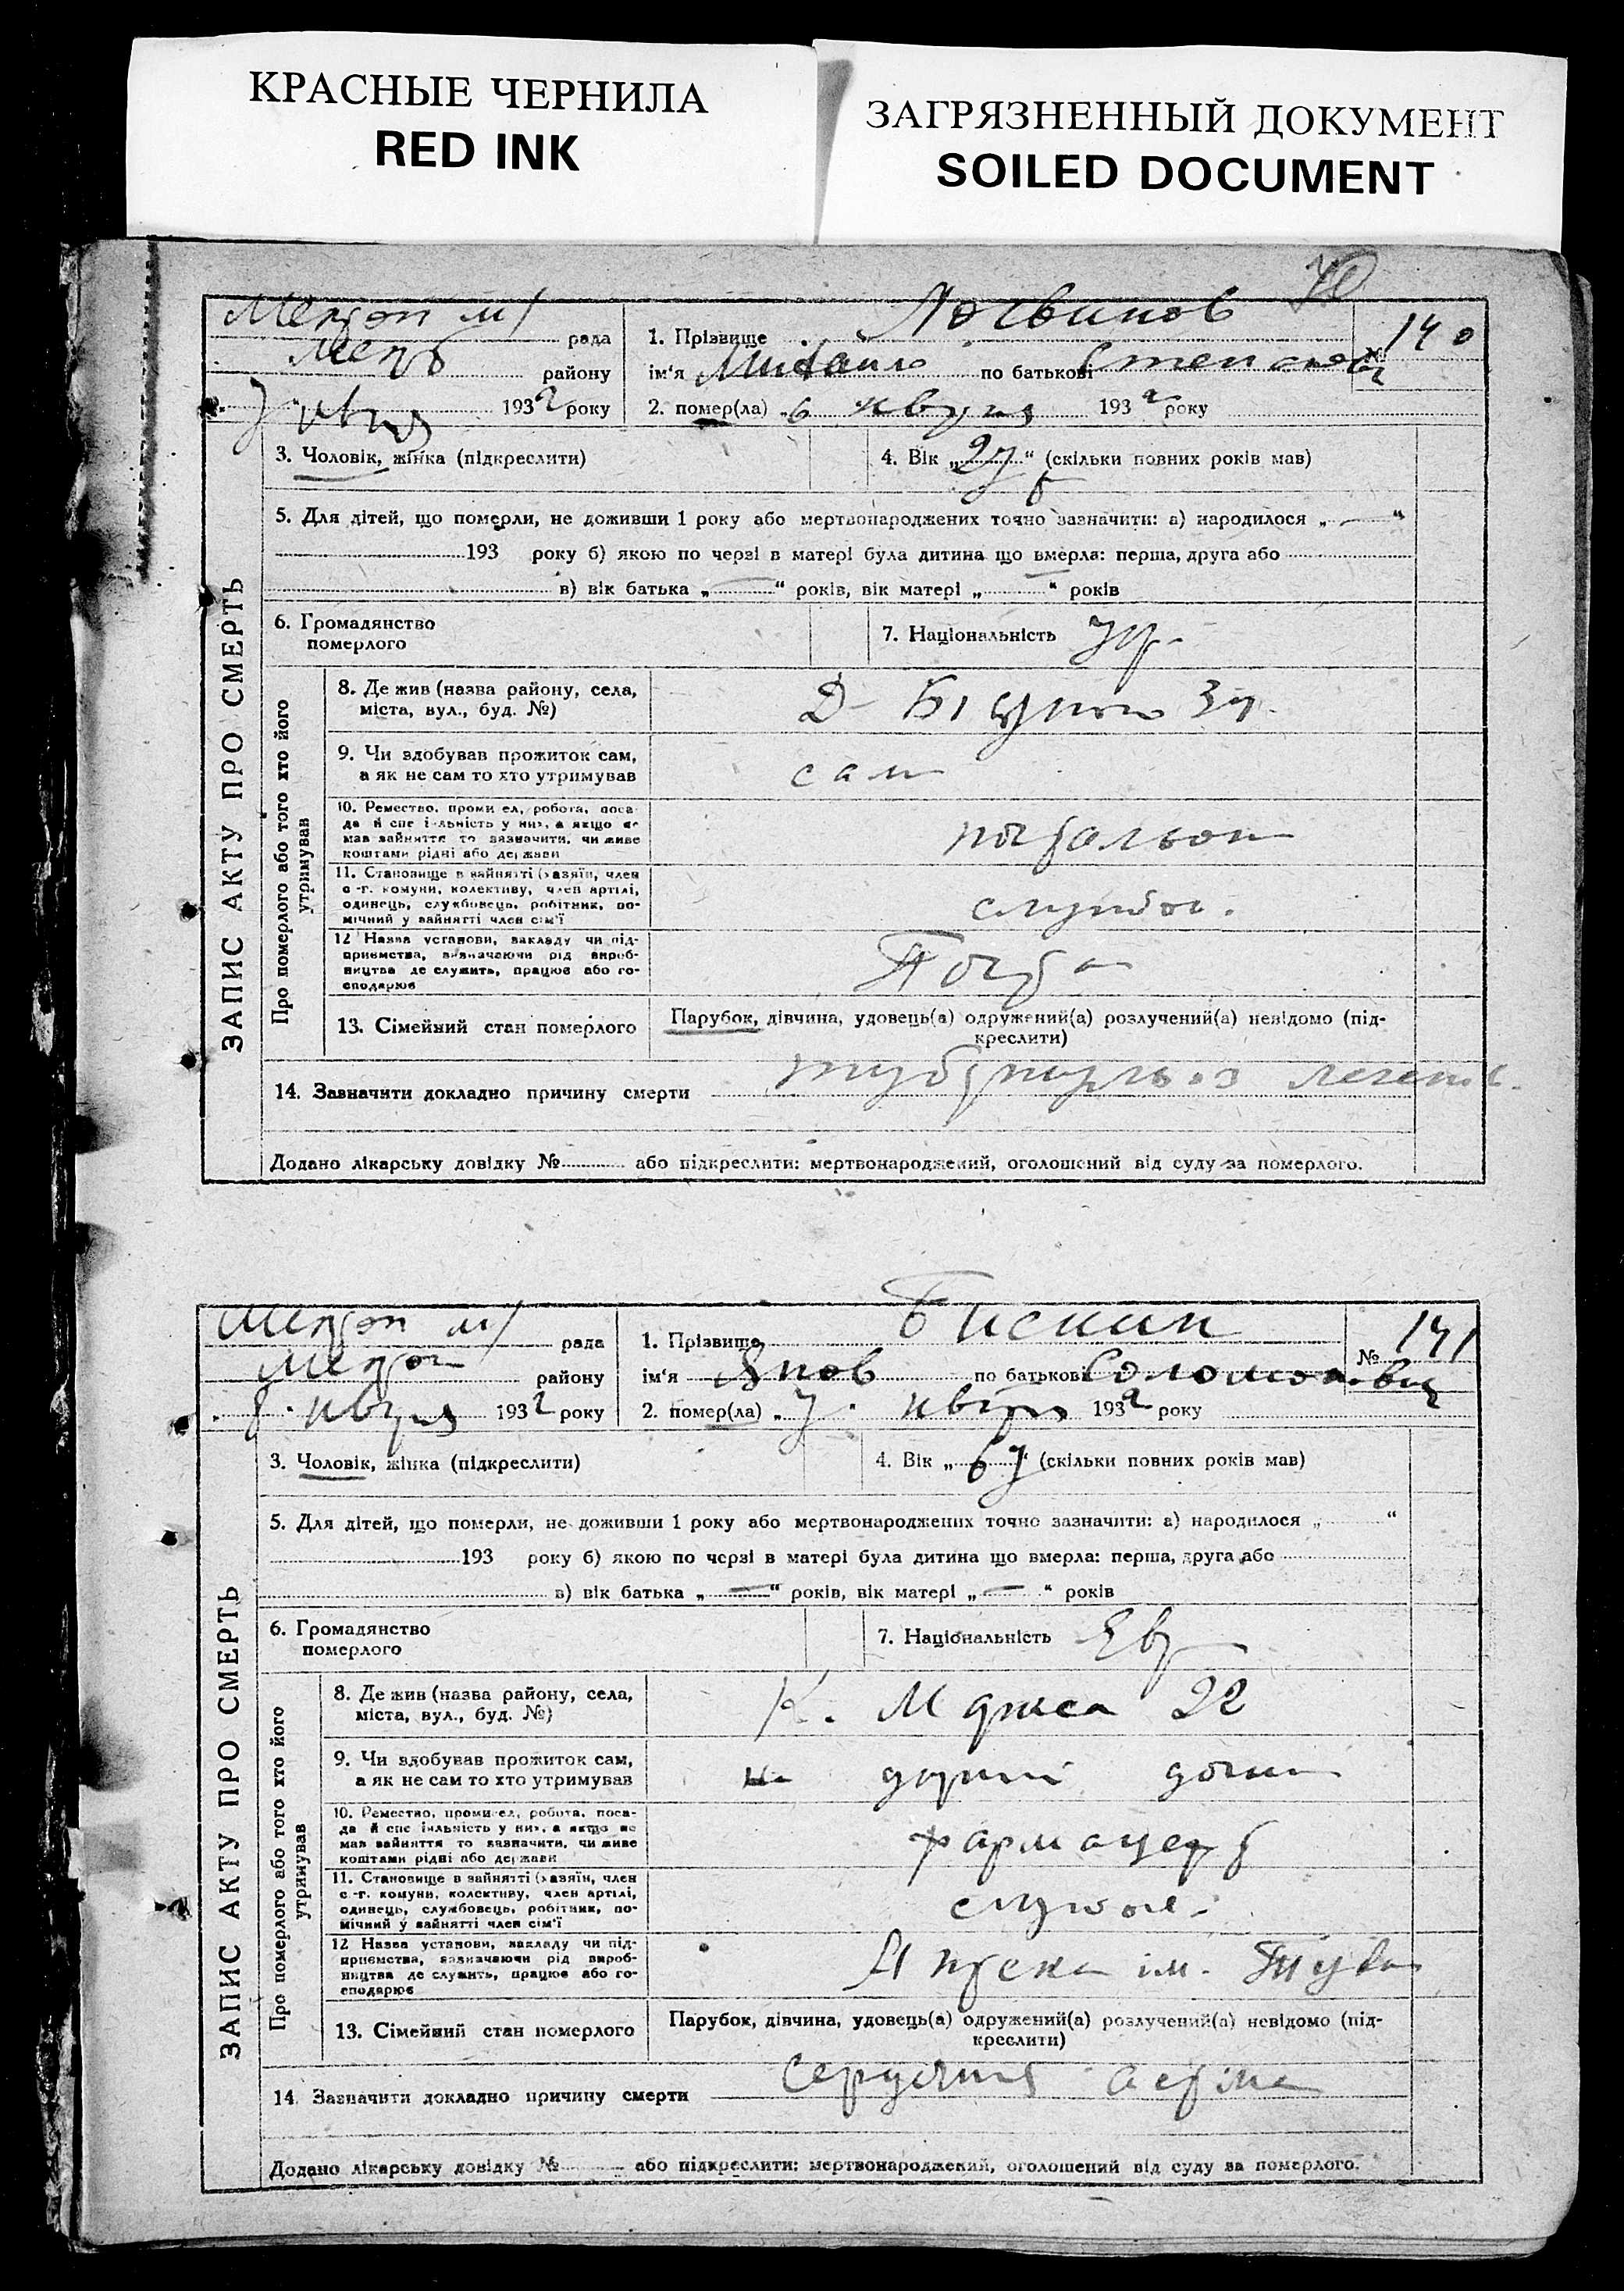 КРАСНЫЕ ЧЕРНИЛА
RED INK
ЗАГРЯЗНЕННЫЙ ДОКУМЕНТ
SOILED DOCUMENT
70
рада
району
7 1932 року
1. Прізвище Логвинов
№ 140
ім'я Михайло по батькові Степанович
2. помер(ла) „6 квітня 1932 року
3. Чоловік, жінка (підкреслити)
4. Вік „27“ (скільки повних років мав)
5. Для дітей, що померли, не доживши 1 року або мертвонароджених точно зазначити: а) народилося „ — “
193 року б) якою по черзі в матері була дитина що вмерла: перша, друга або
в) вік батька „ — “ років, вік матері „ — “ років
6. Громадянство
померлого
7. Національність Укр.
ЗАПИС АКТУ ПРО СМЕРТЬ
Про померлого або того хто його
утримував
8. Де жив (назва району, села,
міста, вул., буд. №)
9. Чи здобував прожиток сам,
а як не сам то хто утримував
сам
10. Ремество, промисел, робота, поса-
да й спеціяльність у них, а якщо не
мав зайняття то зазначити, чи живе
коштами рідні або держави
11. Становище в зайнятті (хазяїн, член
с.-г. комуни, колективу, член артілі,
одинець, службовець, робітник, по-
мічний у зайнятті член сім'ї
службов.
12 Назва установи, закладу чи під-
приємства, визначаючи рід вироб-
ництва де служить, працює або го-
сподарює
Пошта
13. Сімейний стан померлого
Парубок, дівчина, удовець(а) одружений(а) розлучений(а) невідомо (під-
креслити)
14. Зазначити докладно причину смерти туберкульоз легенів.
Додано лікарську довідку № або підкреслити: мертвонароджений, оголошений від суду за померлого.
рада
району
8 квітня 1932 року
1. Прізвище Бискин
№ 141
ім'я Яков по батькові Соломонович
2. помер(ла) „7 квітня 1932 року
3. Чоловік, жінка (підкреслити)
4. Вік „67“ (скільки повних років мав)
5. Для дітей, що померли, не доживши 1 року або мертвонароджених точно зазначити: а) народилося „ “
193 року б) якою по черзі в матері була дитина що вмерла: перша, друга або
в) вік батька „ — “ років, вік матері „ — “ років
6. Громадянство
померлого
7. Національність Евр
ЗАПИС АКТУ ПРО СМЕРТЬ
Про померлого або того хто його
утримував
8. Де жив (назва району, села,
міста, вул., буд. №)
К. Маркса 22
9. Чи здобував прожиток сам,
а як не сам то хто утримував
10. Ремество, промисел, робота, поса-
да й спеціяльність у них, а якщо не
мав зайняття то зазначити, чи живе
коштами рідні або держави
фармацевт
11. Становище в зайнятті (хазяїн, член
с.-г. комуни, колективу, член артілі,
одинець, службовець, робітник, по-
мічний у зайнятті член сім'ї
служб.
12 Назва установи, закладу чи під-
приємства, визначаючи рід вироб-
ництва де служить, працює або го-
сподарює
Аптека ім.
13. Сімейний стан померлого
Парубок, дівчина, удовець(а) одружений(а) розлучений(а) невідомо (під-
креслити)
14. Зазначити докладно причину смерти Сердечна астма
Додано лікарську довідку № або підкреслити: мертвонароджений, оголошений від суду за померлого.